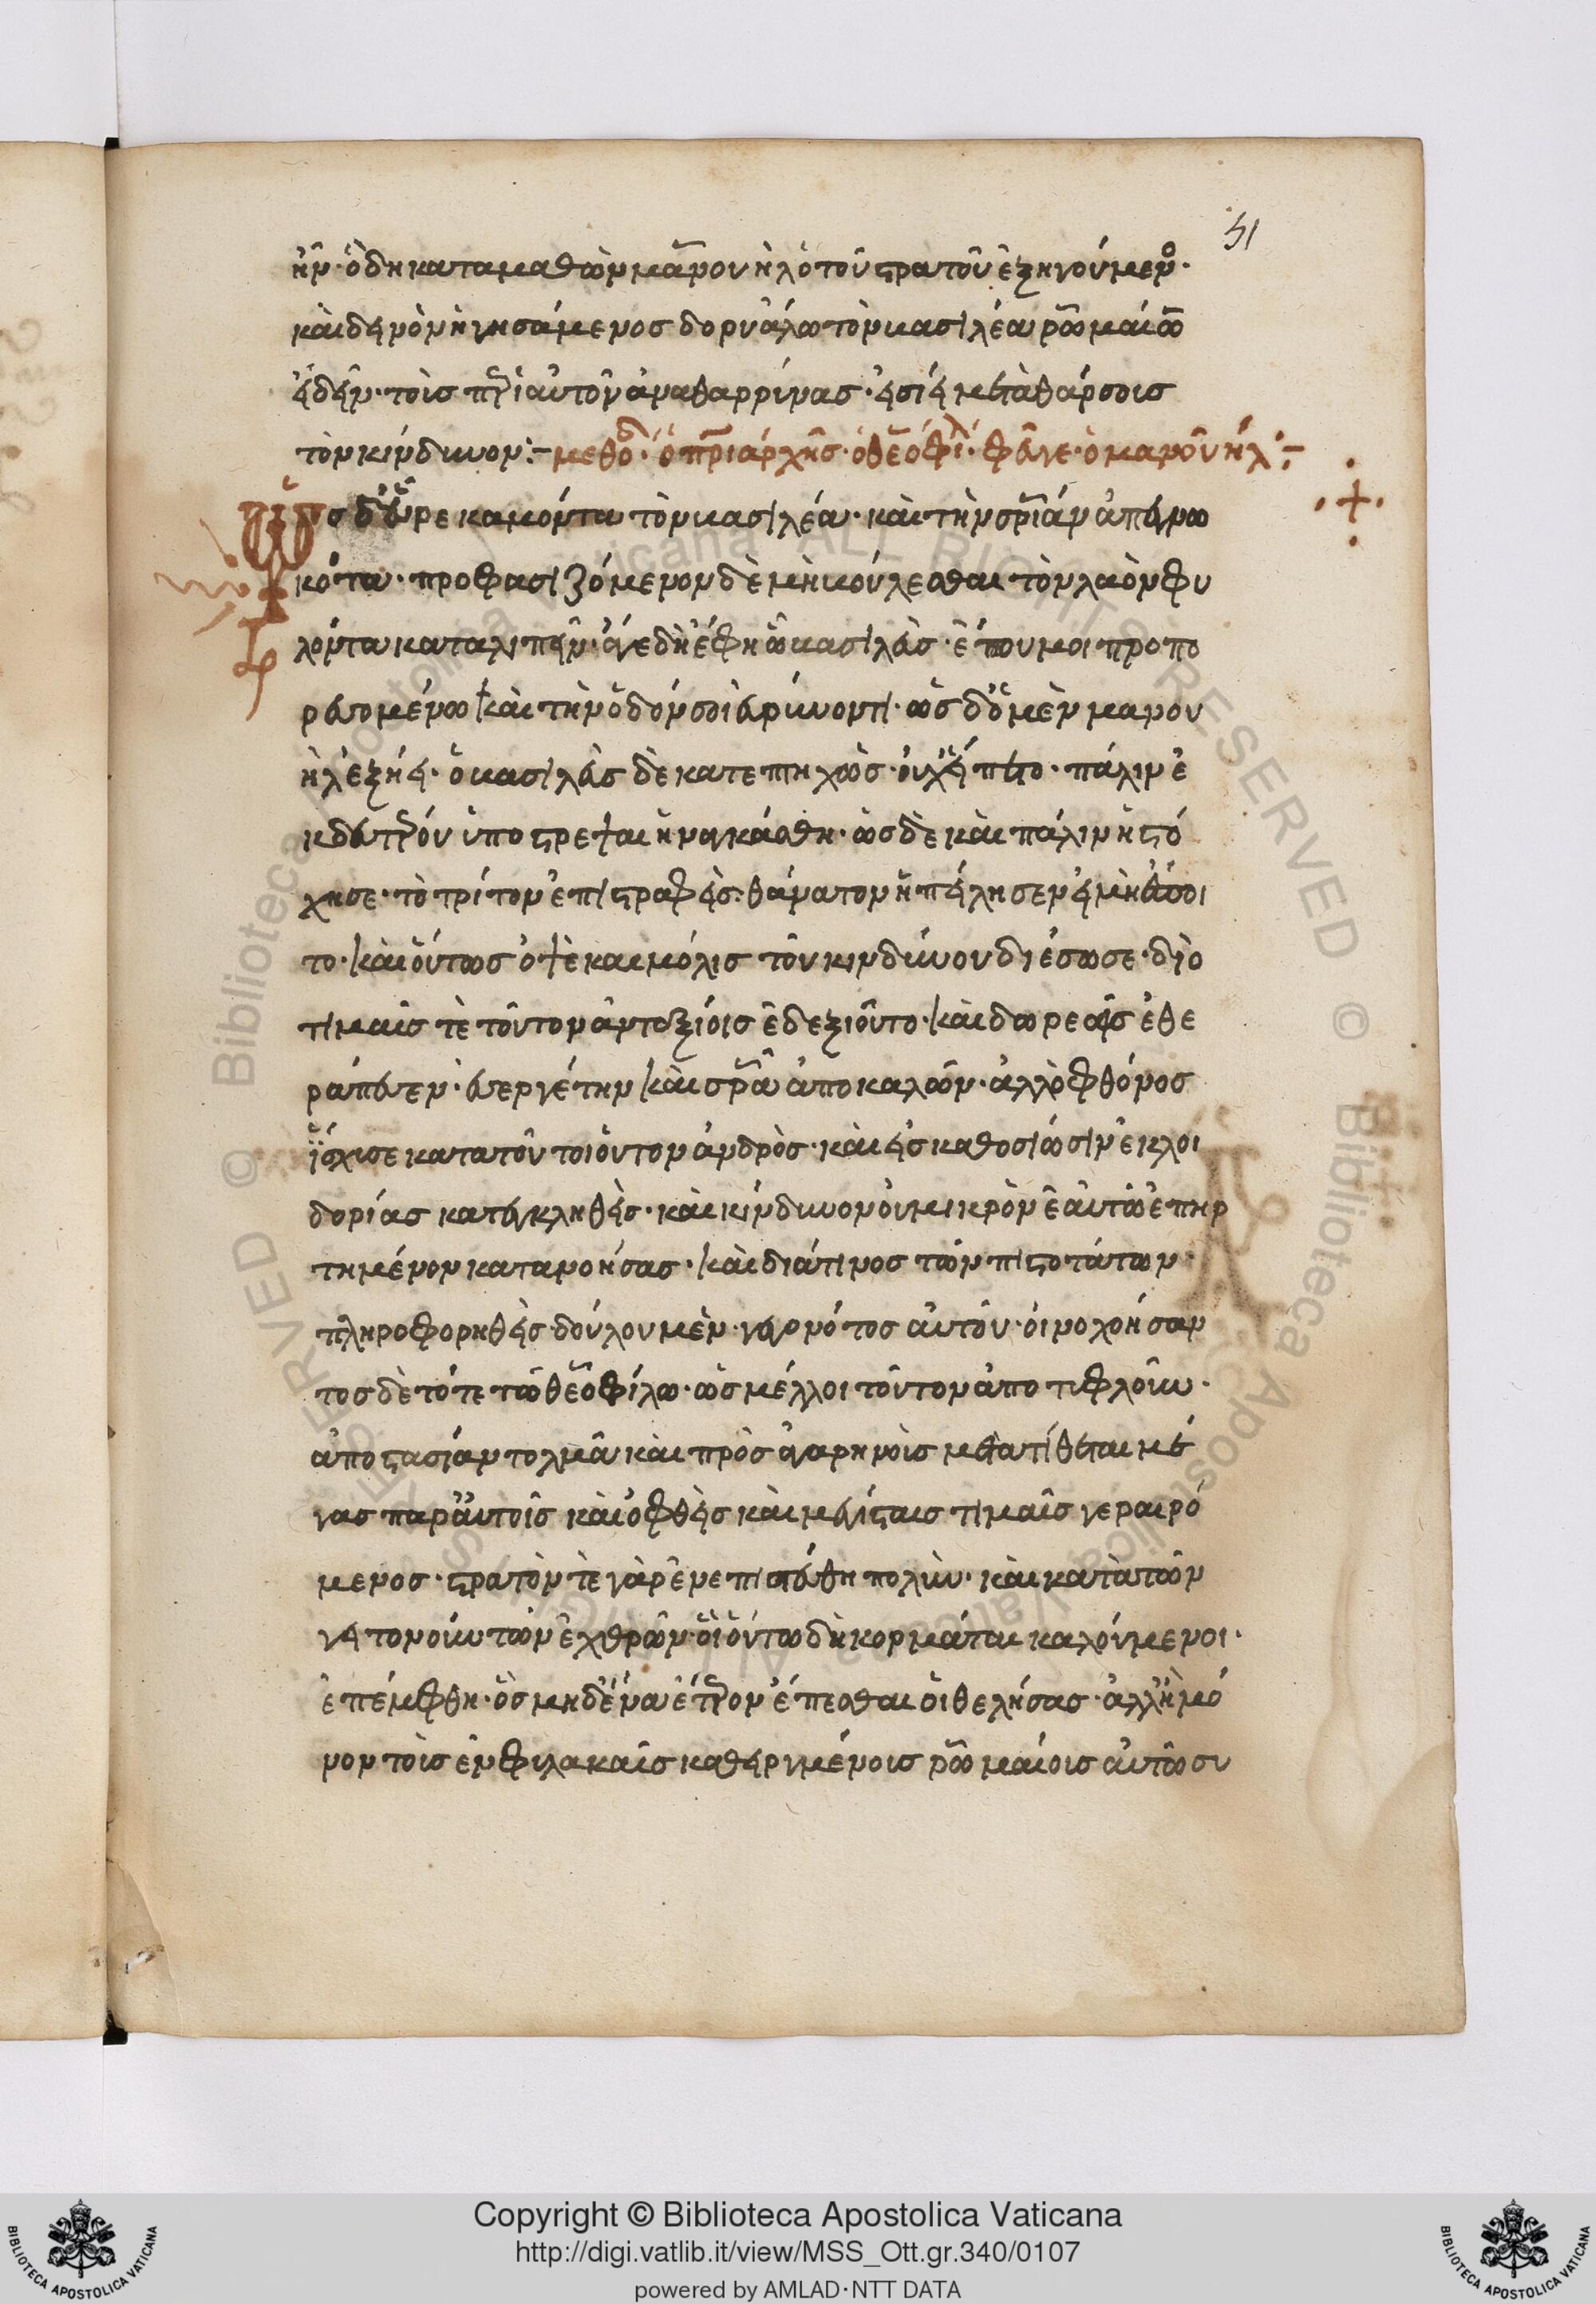 51
ἦν· ὃ δὴ καταμαθὼν μανουὴλ ὁ τοῦ στρατοῦ ἐξηγούμενος·
καὶ δεινὸν ἡγησάμενος δορυάλω τὸν βασιλέα ῥωμαίων
ἰδεῖν· τοῖς περὶ αὐτὸν ἀναθαρρύνας· εἴσεισι μετὰ θάρσους
τὸν κίνδυνον:– μεθόδ· ὁ πριάρχης· ὁ θεόφιλ· φεύγε· ὁ μανουήλ:–
Ὡς δ' εὗρε καμόντα τὸν βασιλέα· καὶ τὴν σρίαν ἀπεγνω
κότα· προφασιζόμενον δὲ μὴ βούλεσθαι τὸν λαὸν φυ
λόντα καταλιπεῖν· ἄγε δὴ ἔφη ὦ βασιλεῦ· ἕπου μοι προπο
ρευομένω καὶ τὴν ὁδόν σοι εὐρύνοντι· ὡς δ' ὁ μὲν μανου
ὴλ ἐξήει· ὁ βασιλεὺς δὲ κατεπτηχὼς· οὐχ εἵπετο· πάλιν ἐ
κ δευτέρου ὑποστρέψαι ἠναγκάσθη· ὡς δὲ καὶ πάλιν ἠστό
χησε· τὸ τρίτον ἐπιστραφεὶς· θάνατον ἠπείλησεν εἰ μὴ ἕποι
το· καὶ οὕτως ὀψὲ καὶ μόλις τοῦ κινδύνου διέσωσε· διὸ
τιμαῖς τὲ τοῦτον ἀνταξίοις ἐδεξιοῦτο· καὶ δωρεαῖς ἐθε
ράπευεν· εὐεργέτην καὶ σρα ἀποκαλῶν· ἀλλ' ὁ φθόνος
ἴσχυσε κατὰ τοῦ τοιούτου ἀνδρὸς· καὶ εἰς καθοσίωσιν ἐκ λοι
δορίας κατεγκληθεὶς· καὶ κίνδυνον οὐ μικρὸν ἑαυτῶ ἐπηρ
τημένον κατανοήσας· καὶ διά τινος τῶν πιστοτάτων·
πληροφορηθεὶς· δούλου μὲν γεγονότος αὐτοῦ· οἰνοχοήσαν
τος δὲ τότε τῶ θεοφίλω· ὡς μέλλοι τοῦτον ἀποτυφλοῦν·
ἀποστασίαν τολμᾶ καὶ πρὸς ἀγαρηνοὺς μετατίθεται μέ
γας παρ' αὐτοῖς καὶ ὀφθεὶς καὶ μεγίσταις τιμαῖς γεραιρό
μενος· στρατὸν τὲ γὰρ ἐνεπιστεύθη πολὺν· καὶ κατὰ τῶν
γειτονούντων ἐχθρῶν· οἳ οὕτω δὴ κορμάται καλούμενοι·
ἐπέμφθη· ὃς μηδένα ἕτερον ἕπεσθαι οἱ θελήσας· ἀλλ' ἢ μό
νον τοῖς ἐν φυλακαῖς καθειργμένοις ῥωμαίοις αὐτῶ συ
Copyright © Biblioteca Apostolica Vaticana
http://digi.vatlib.it/view/MSS_Ott.gr.340/0107
powered by AMLAD·NTT DATA